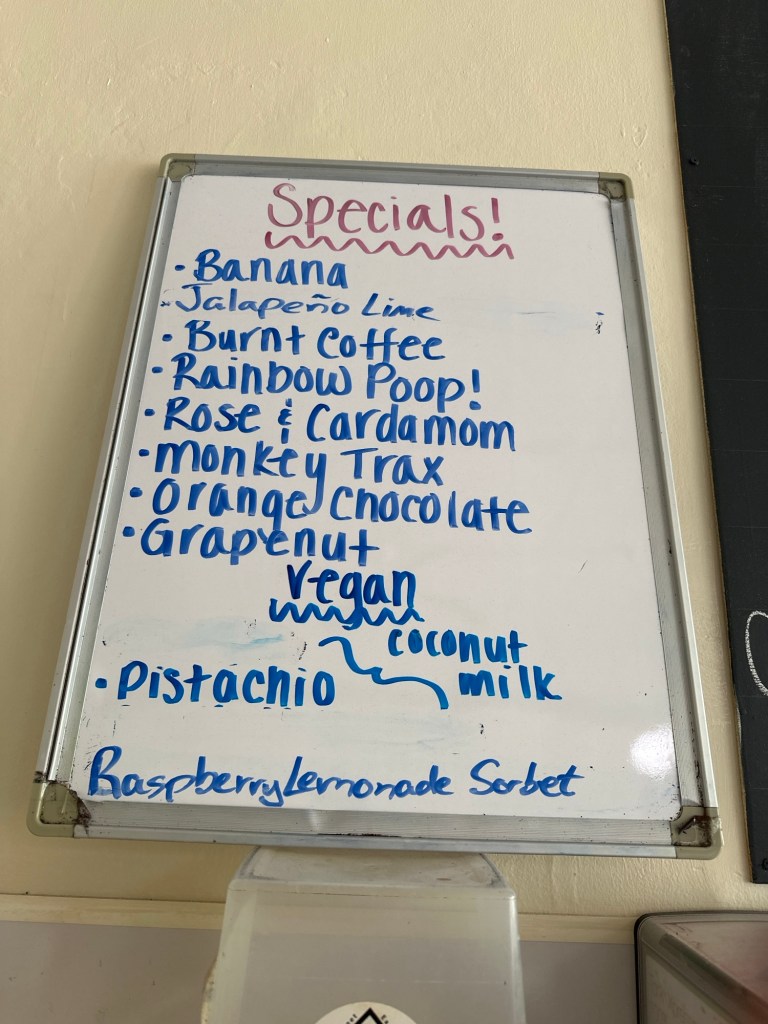 Specials!
• Banana
• Jalapeño Lime
• Burnt Coffee
• Rainbow Poop!
• Rose & Cardamom
• Monkey Trax
• Orange Chocolate
• Grapenut
Vegan
coconut
milk
• Pistachio
Raspberry Lemonade Sorbet